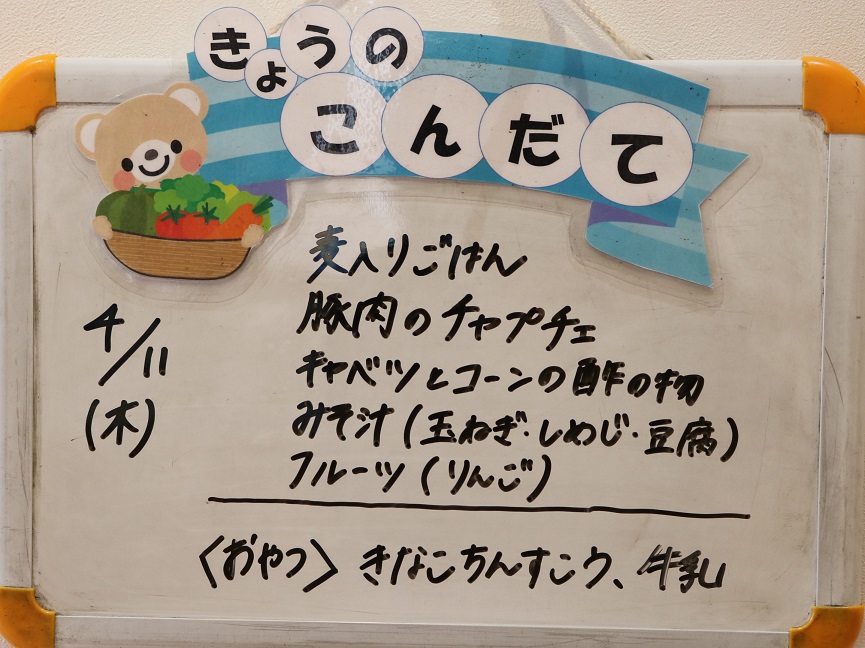 きょうの
こんだて
4/11
(木)
麦入りごはん
豚肉のチャプチェ
キャベツとコーンの酢の物
みそ汁(玉ねぎ・しめじ・豆腐)
フルーツ(りんご)
〈おやつ〉きなこちんすこう、牛乳